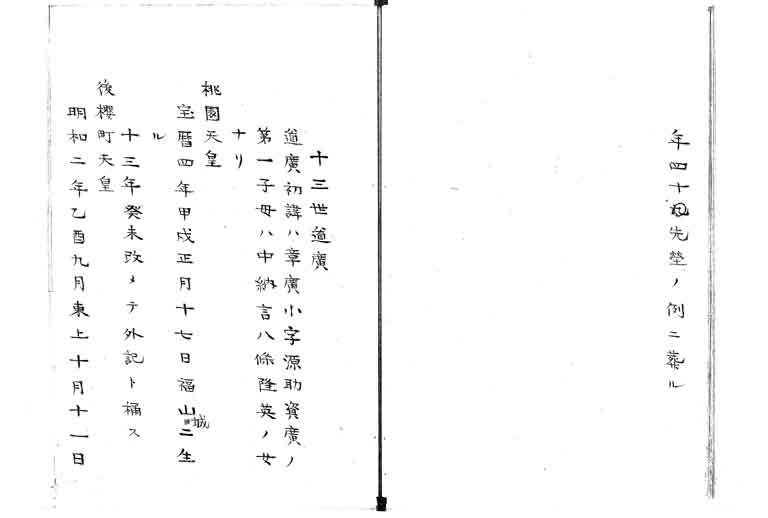 年四十先塋ノ例ニ葬ル
十三世道廣
道廣初諱ハ章廣小字源助資廣ノ
第一子母ハ中納言八條隆英ノ女
ナリ
桃園天皇
宝暦四年甲戌正月十七日福山城ニ生
ル
十三年癸未改メテ外記ト稱ス
後櫻町天皇
明和二年乙酉九月東上十月十一日